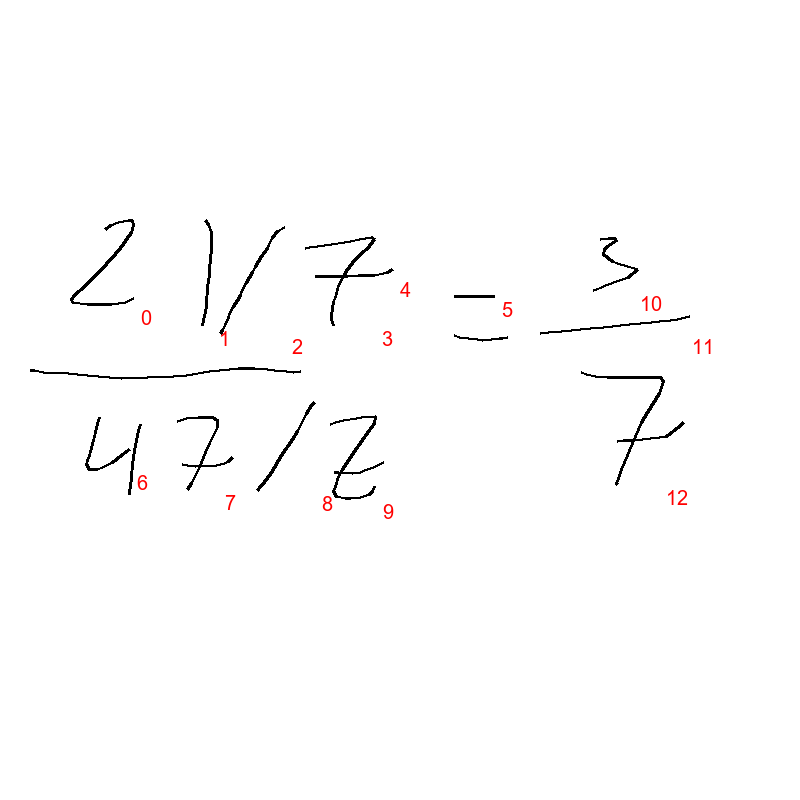 21/7 = 3
47/Z 7
0 1 2 3 4 5 6 7 8 9 10 11 12